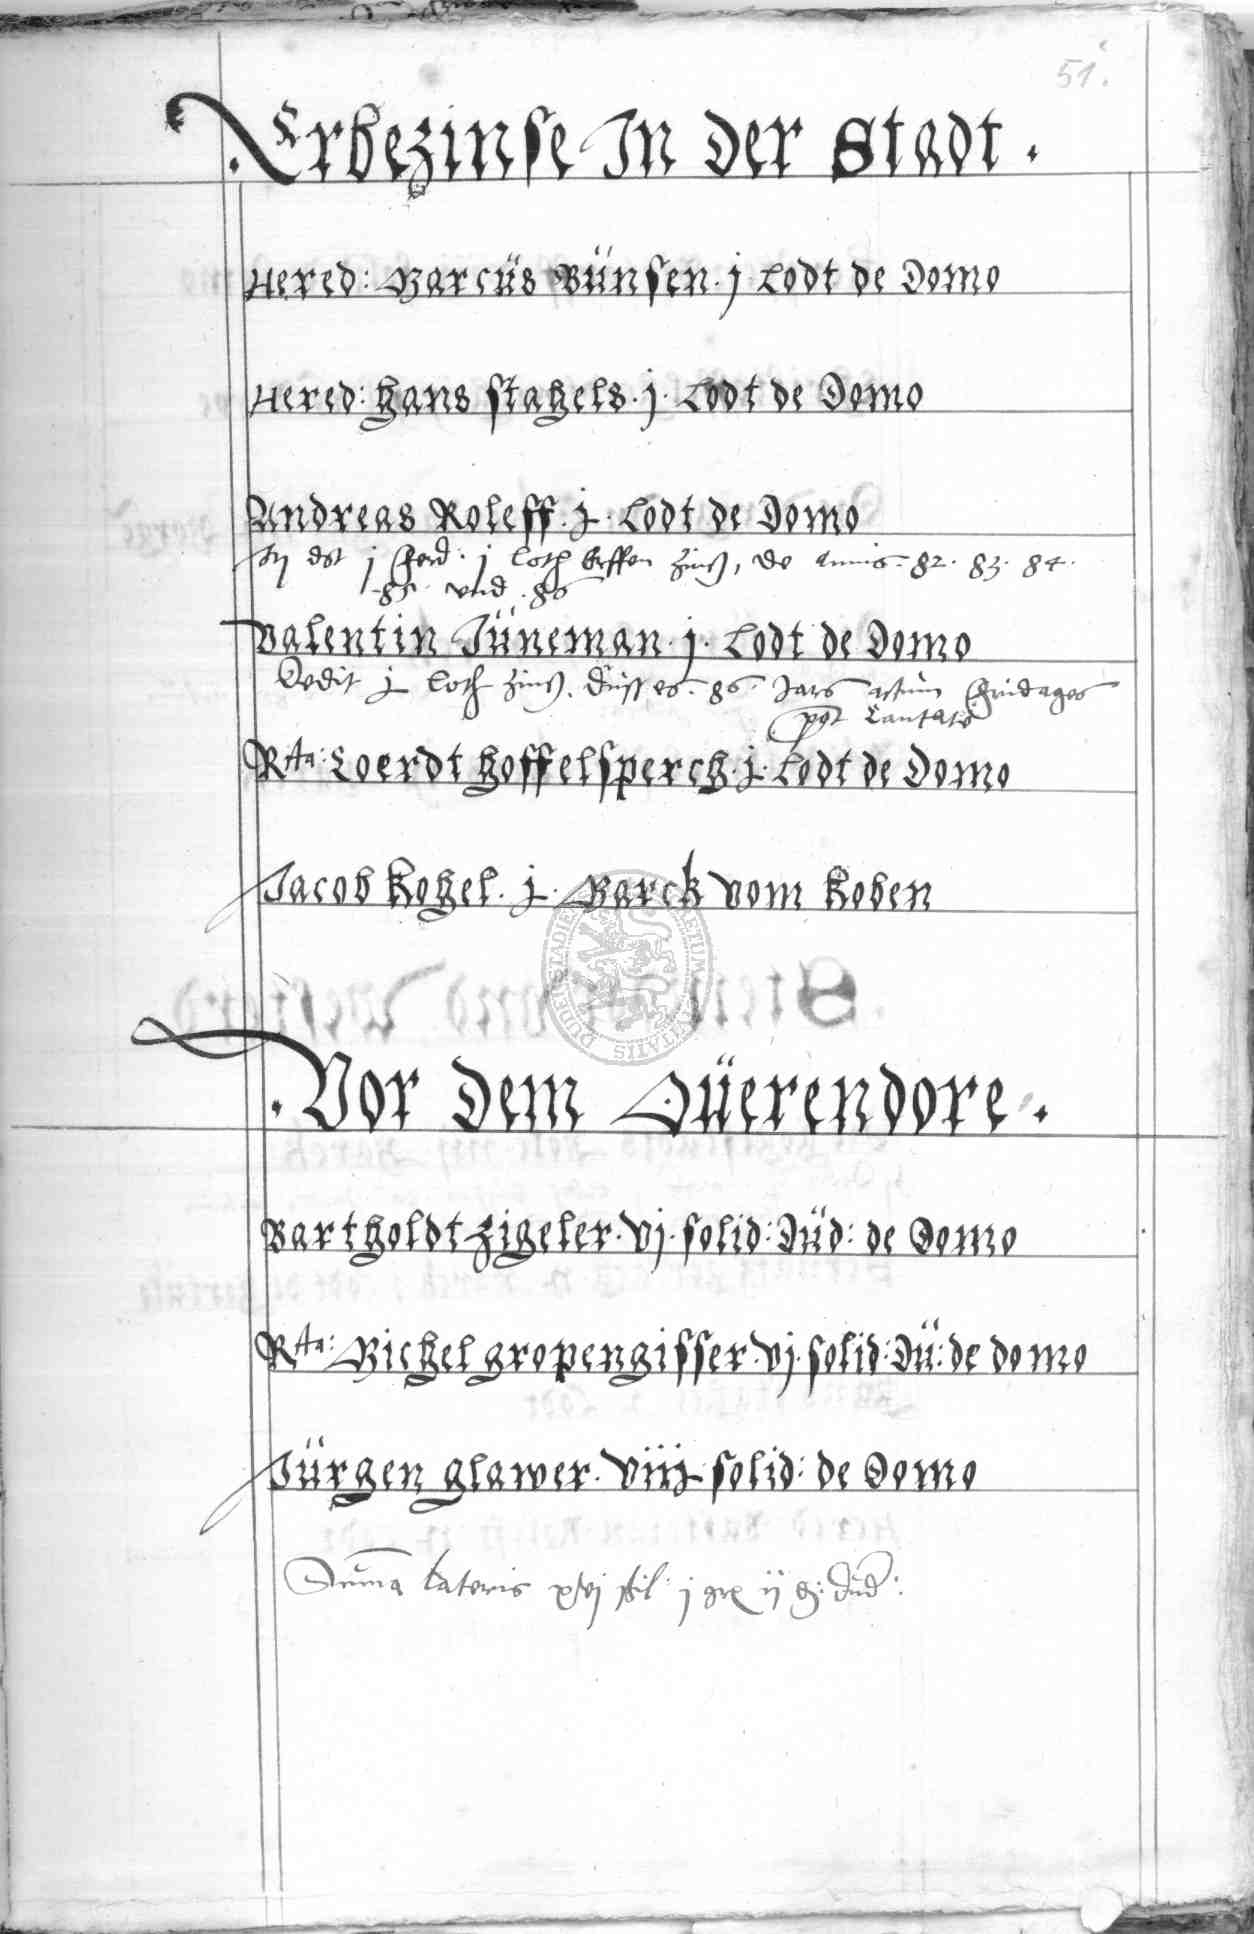 51.
Erbezinse In der Stadt.
Hered: Marcüs Bünsen. j Lodt de Domo
Hered: hans stahels. j. Lodt de Domo
Andreas Roleff. j. Lodt de Domo
dt j ferd. j loth Erffen Zinß, de annis. 82. 83. 84.
85. vnd. 86
Valentin Jüneman. j. Lodt de Domo
Dedit j loth Zinß. düsses. 86. Jars actum fridages
post Cantate
Rta: Coerdt hoffelsperch. j. Lodt de Domo
Jacob kohel. j. Marck vom koben
Vor Dem Düerendore.
Bartholdt Zigeler. vj. solid: Düd: de Domo
Rta: Michel gropengisser. vj. solid: Dü: de domo
Jürgen glawer. viij solid: de Domo
Summa Lateris xvj sil: j ij düd: